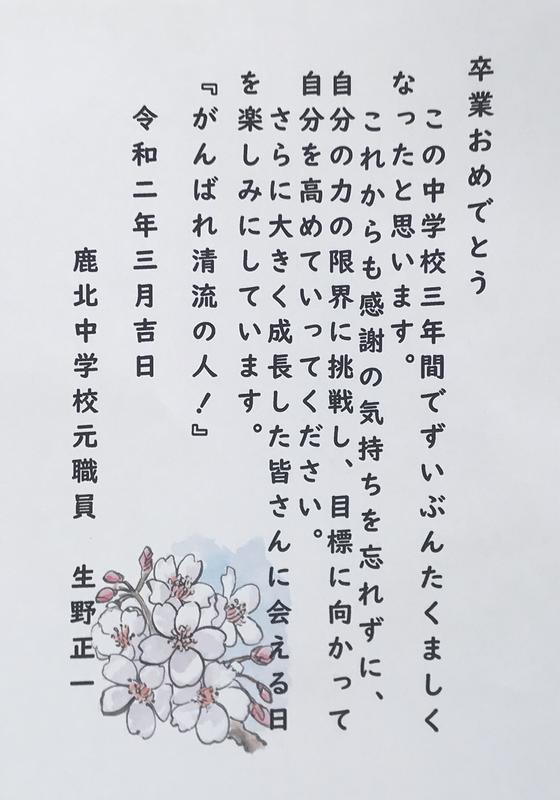 卒業おめでとう
この中学校三年間でずいぶんたくましく
なったと思います。
これからも感謝の気持ちを忘れずに、
自分の力の限界に挑戦し、目標に向かって
自分を高めていってください。
さらに大きく成長した皆さんに会える日
を楽しみにしています。
『がんばれ清流の人!』
令和二年三月吉日
鹿北中学校元職員 生野正一